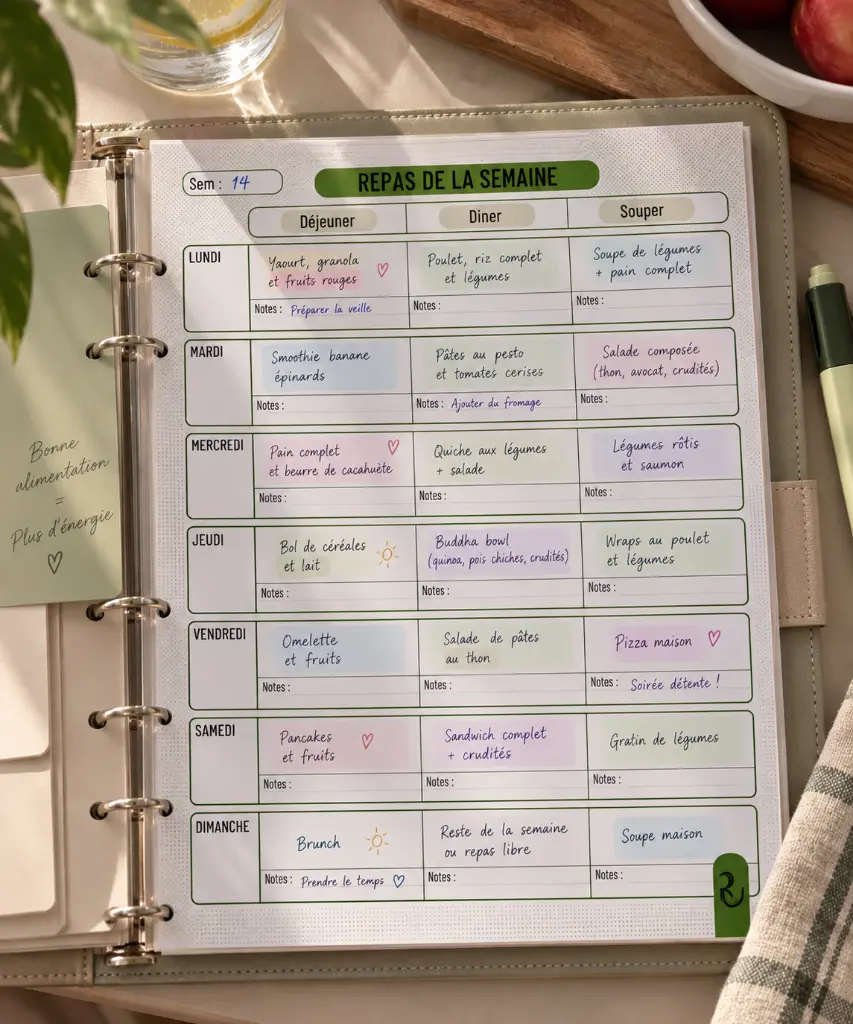 Sem : 14
REPAS DE LA SEMAINE
Déjeuner
Diner
Souper
LUNDI
Yaourt, granola
et fruits rouges
Notes : Préparer la veille
Poulet, riz complet
et légumes
Notes :
Soupe de légumes
+ pain complet
Notes :
MARDI
Smoothie banane
épinards
Notes :
Pâtes au pesto
et tomates cerises
Notes : Ajouter du fromage
Salade composée
(thon, avocat, crudités)
Notes :
MERCREDI
Pain complet
et beurre de cacahuète
Notes :
Quiche aux légumes
+ salade
Notes :
Légumes rôtis
et saumon
Notes :
JEUDI
Bol de céréales
et lait
Notes :
Buddha bowl
(quinoa, pois chiches, crudités)
Notes :
Wraps au poulet
et légumes
Notes :
VENDREDI
Omelette
et fruits
Notes :
Salade de pâtes
au thon
Notes :
Pizza maison
Notes : Soirée détente !
SAMEDI
Pancakes
et fruits
Notes :
Sandwich complet
+ crudités
Notes :
Gratin de légumes
Notes :
DIMANCHE
Brunch
Notes : Prendre le temps
Reste de la semaine
ou repas libre
Notes :
Soupe maison
Notes :
Bonne
alimentation
=
Plus d'énergie